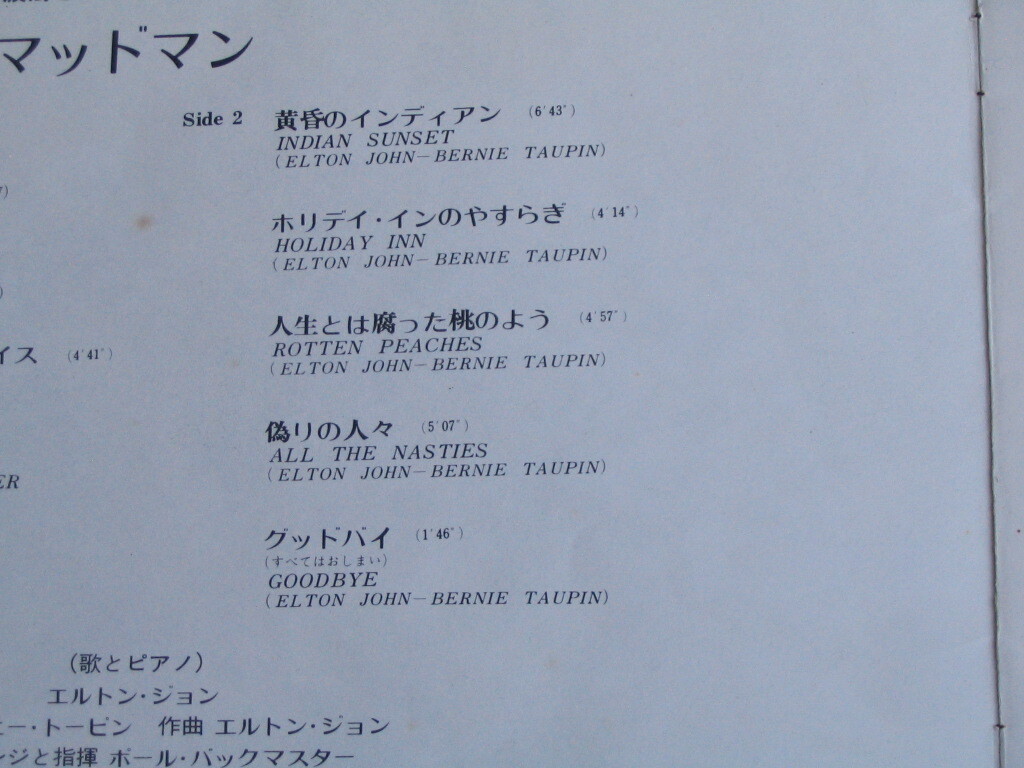 マッドマン
Side 2
黄昏のインディアン (6′43″)
INDIAN SUNSET
(ELTON JOHN−BERNIE TAUPIN)
ホリデイ・インのやすらぎ (4′14″)
HOLIDAY INN
(ELTON JOHN−BERNIE TAUPIN)
人生とは腐った桃のよう (4′57″)
ROTTEN PEACHES
(ELTON JOHN−BERNIE TAUPIN)
イス (4′41″)
偽りの人々 (5′07″)
ALL THE NASTIES
(ELTON JOHN−BERNIE TAUPIN)
ER
グッドバイ (1′46″)
(すべてはおしまい)
GOODBYE
(ELTON JOHN−BERNIE TAUPIN)
(歌とピアノ)
エルトン・ジョン
ニー・トーピン 作曲 エルトン・ジョン
ンジと指揮 ポール・バックマスター